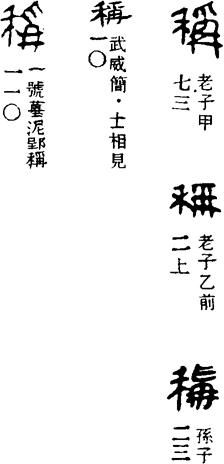 稱
老子甲
七三
稱
老子乙前
二上
稱
孫子
二三
稱
武威簡·士相見
一〇
稱
一號墓泥郢稱
一一〇